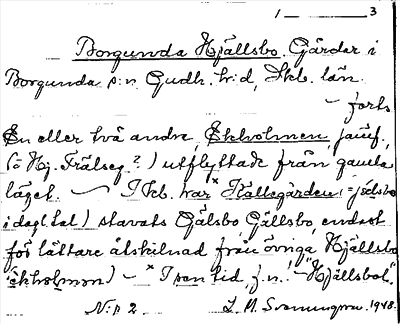 1 ——— 3
Borgunda Hjällsbo. Gårdar i
Borgunda s:n Gudh. h:d, Skb. län.
— forts.
En eller två andre, Ekholmen, jämf.
(å Hj. Frälseg?) utflyttade från gamla
läget. — I kb. var Källegården (=
i dagl. tal) stavats Gälsbo, Gällsbo, endast
för lättare åtskilnad från övriga Hjällsbo
(ekholmen) — I sen tid, f.n. "Hjällsbol".
N:r 2 L. M. Svenungson. 1948.